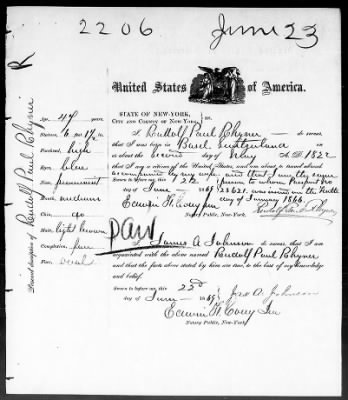 2206 June 23
United States of America.
STATE OF NEW-YORK,
CITY AND COUNTY OF NEW-YORK, ss.
I, Rudolf Paul Rhyner do swear,
that I was born in Basel Switzerland
on about the second day of May A.D. 1822
that I am a citizen of the United States, and about to travel abroad
accompanied by my wife and that I am the same
Sworn to before me this 22d person to whom Passport No
day of June 186 23621 was issued on the
of January 1866.
Notary Public, New-York.
I, James A Johnson do swear, that I am
acquainted with the above named Rudolf Paul Rhyner
and that the facts above stated by him are true, to the best of my knowledge
and belief.
Sworn to before me this 22d
day of June 186 Jas A. Johnson
Notary Public, New-York.
Personal description of Rudolf Paul Rhyner
Age, 47 years.
Stature,
Forehead, high
Eyes, blue
Nose, prominent
Mouth, medium
Chin,
Hair, light brown
Complexion,
Face, oval